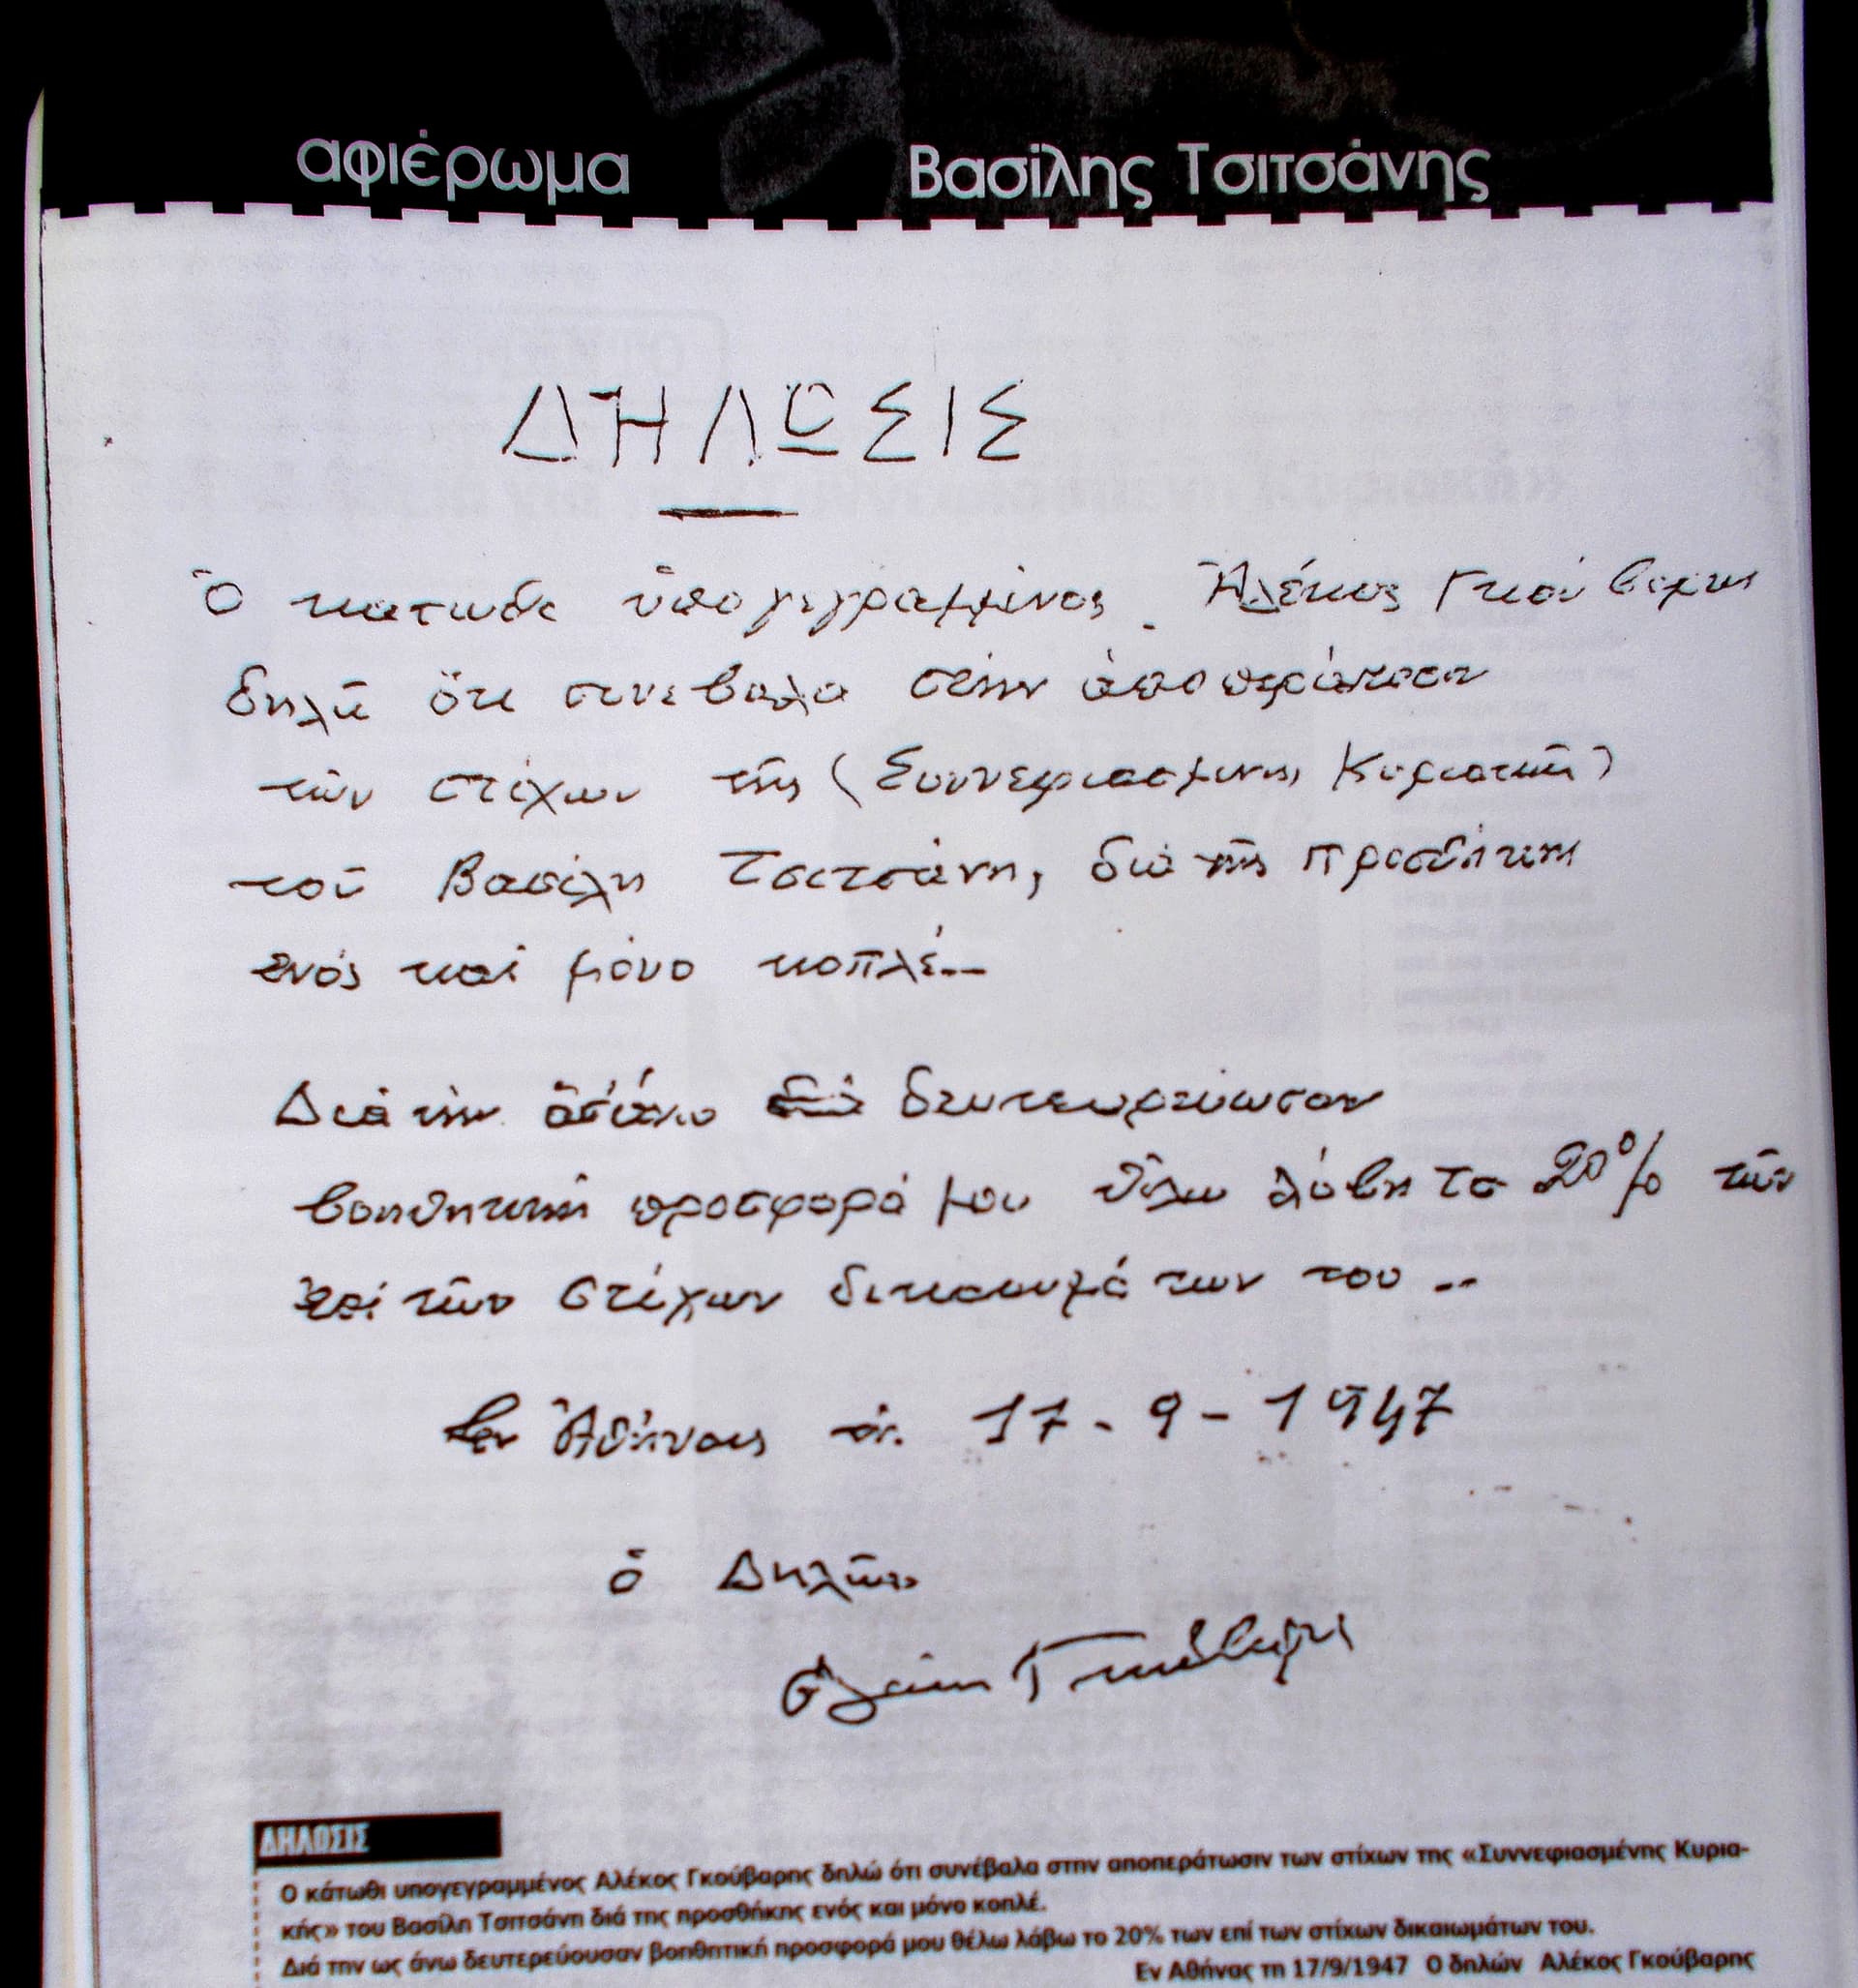 αφιέρωμα Βασίλης Τσιτσάνης
ΔΗΛΩΣΙΣ
Ὁ κατωθι ὑπογεγραμμένος Ἀλέκος Γκούβαρης
δηλῶ ὅτι συνεβαλα στήν ἀποπεράτωσιν
τῶν στίχων τῆς (Συννεφιασμενης Κυριακῆς)
τοῦ Βασίλη Τσιτσάνη, διά τῆς προσθήκης
ενός καί μόνο κοπλέ..
Διά τήν ὡς ἄνω δευτερεύωσαν
βοηθητική προσφορά μου θέλω λάβη το 20% τῶν
ἐπί τῶν στίχων δικαιωμάτων του ..
Εν Ἀθήναις τῇ 17-9-1947
ὁ Δηλῶν
Αλέκος Γκούβαρης
ΔΗΛΩΣΙΣ
Ο κάτωθι υπογεγραμμένος Αλέκος Γκούβαρης δηλώ ότι συνέβαλα στην αποπεράτωσιν των στίχων της «Συννεφιασμένης Κυρια-
κής» του Βασίλη Τσιτσάνη διά της προσθήκης ενός και μόνο κοπλέ.
Διά την ως άνω δευτερεύουσαν βοηθητική προσφορά μου θέλω λάβω το 20% των επί των στίχων δικαιωμάτων του.
Εν Αθήνας τη 17/9/1947 Ο δηλών Αλέκος Γκούβαρης